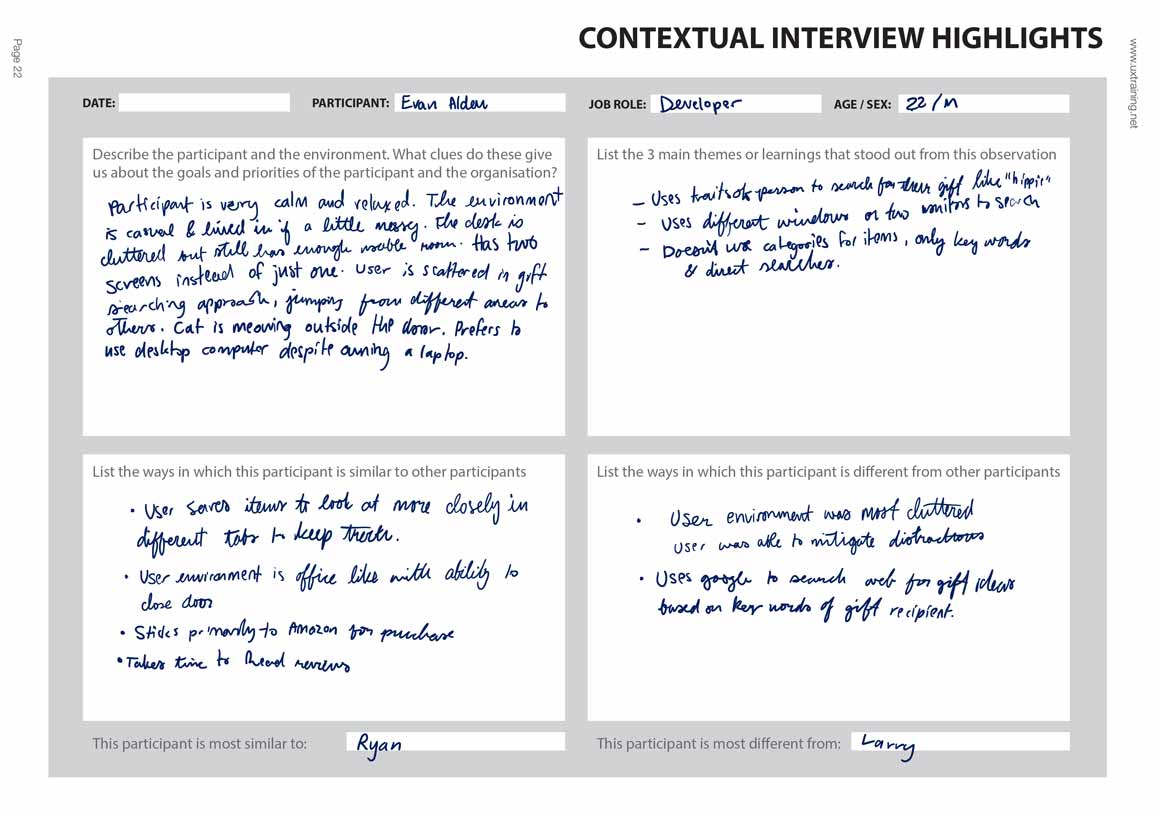 CONTEXTUAL INTERVIEW HIGHLIGHTS
Page 22
www.uxtraining.net
DATE:
PARTICIPANT: Evan Alden
JOB ROLE: Developer
AGE / SEX: 22 / M
Describe the participant and the environment. What clues do these give
us about the goals and priorities of the participant and the organisation?
Participant is very calm and relaxed. The environment
is casual & lived in if a little messy. The desk is
cluttered but still has enough usable room. Has two
screens instead of just one. User is scattered in gift
searching approach, jumping from different areas to
others. Cat is meowing outside the door. Prefers to
use desktop computer despite owning a laptop.
List the 3 main themes or learnings that stood out from this observation
– Uses traits of person to search for their gift like "hippie"
– Uses different windows or two monitors to search
– Doesn't use categories for items, only key words
& direct searches.
List the ways in which this participant is similar to other participants
• User saves items to look at more closely in
different tabs to keep track.
• User environment is office like with ability to
close door
• Sticks primarily to Amazon for purchase
• Takes time to Read reviews
List the ways in which this participant is different from other participants
• User environment was most cluttered
user was able to mitigate distractions
• Uses google to search web for gift ideas
based on key words of gift recipient.
This participant is most similar to: Ryan
This participant is most different from: Larry